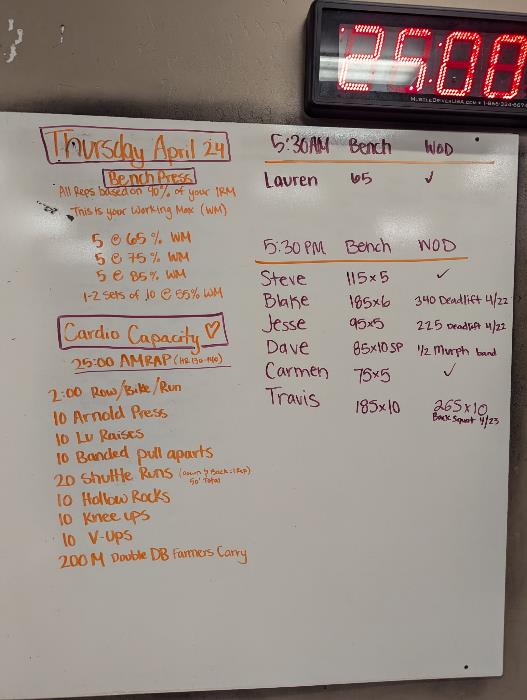 25:00
MuscleDriverUSA.com • 1-866-
Thursday April 24
Bench Press
All Reps based on 90% of your 1RM
This is your Working Max (WM)
5 @ 65% WM
5 @ 75% WM
5 @ 85% WM
1-2 sets of 10 @ 55% WM
Cardio Capacity ♡
25:00 AMRAP (HR 130-140)
2:00 Row/Bike/Run
10 Arnold Press
10 Lu Raises
10 Banded pull aparts
20 Shuttle Runs (Down & Back = 1 Rep)
50' Total
10 Hollow Rocks
10 Knee ups
10 V-Ups
200 M Double DB Farmers Carry
5:30AM Bench WOD
Lauren 65 ✓
5:30 PM Bench WOD
Steve 115x5 ✓
Blake 185x6 340 Deadlift 4/22
Jesse 95x5 225 Deadlift 4/22
Dave 85x10 SP 1/2 Murph band
Carmen 75x5 ✓
Travis 185x10 265x10
Back Squat 4/23